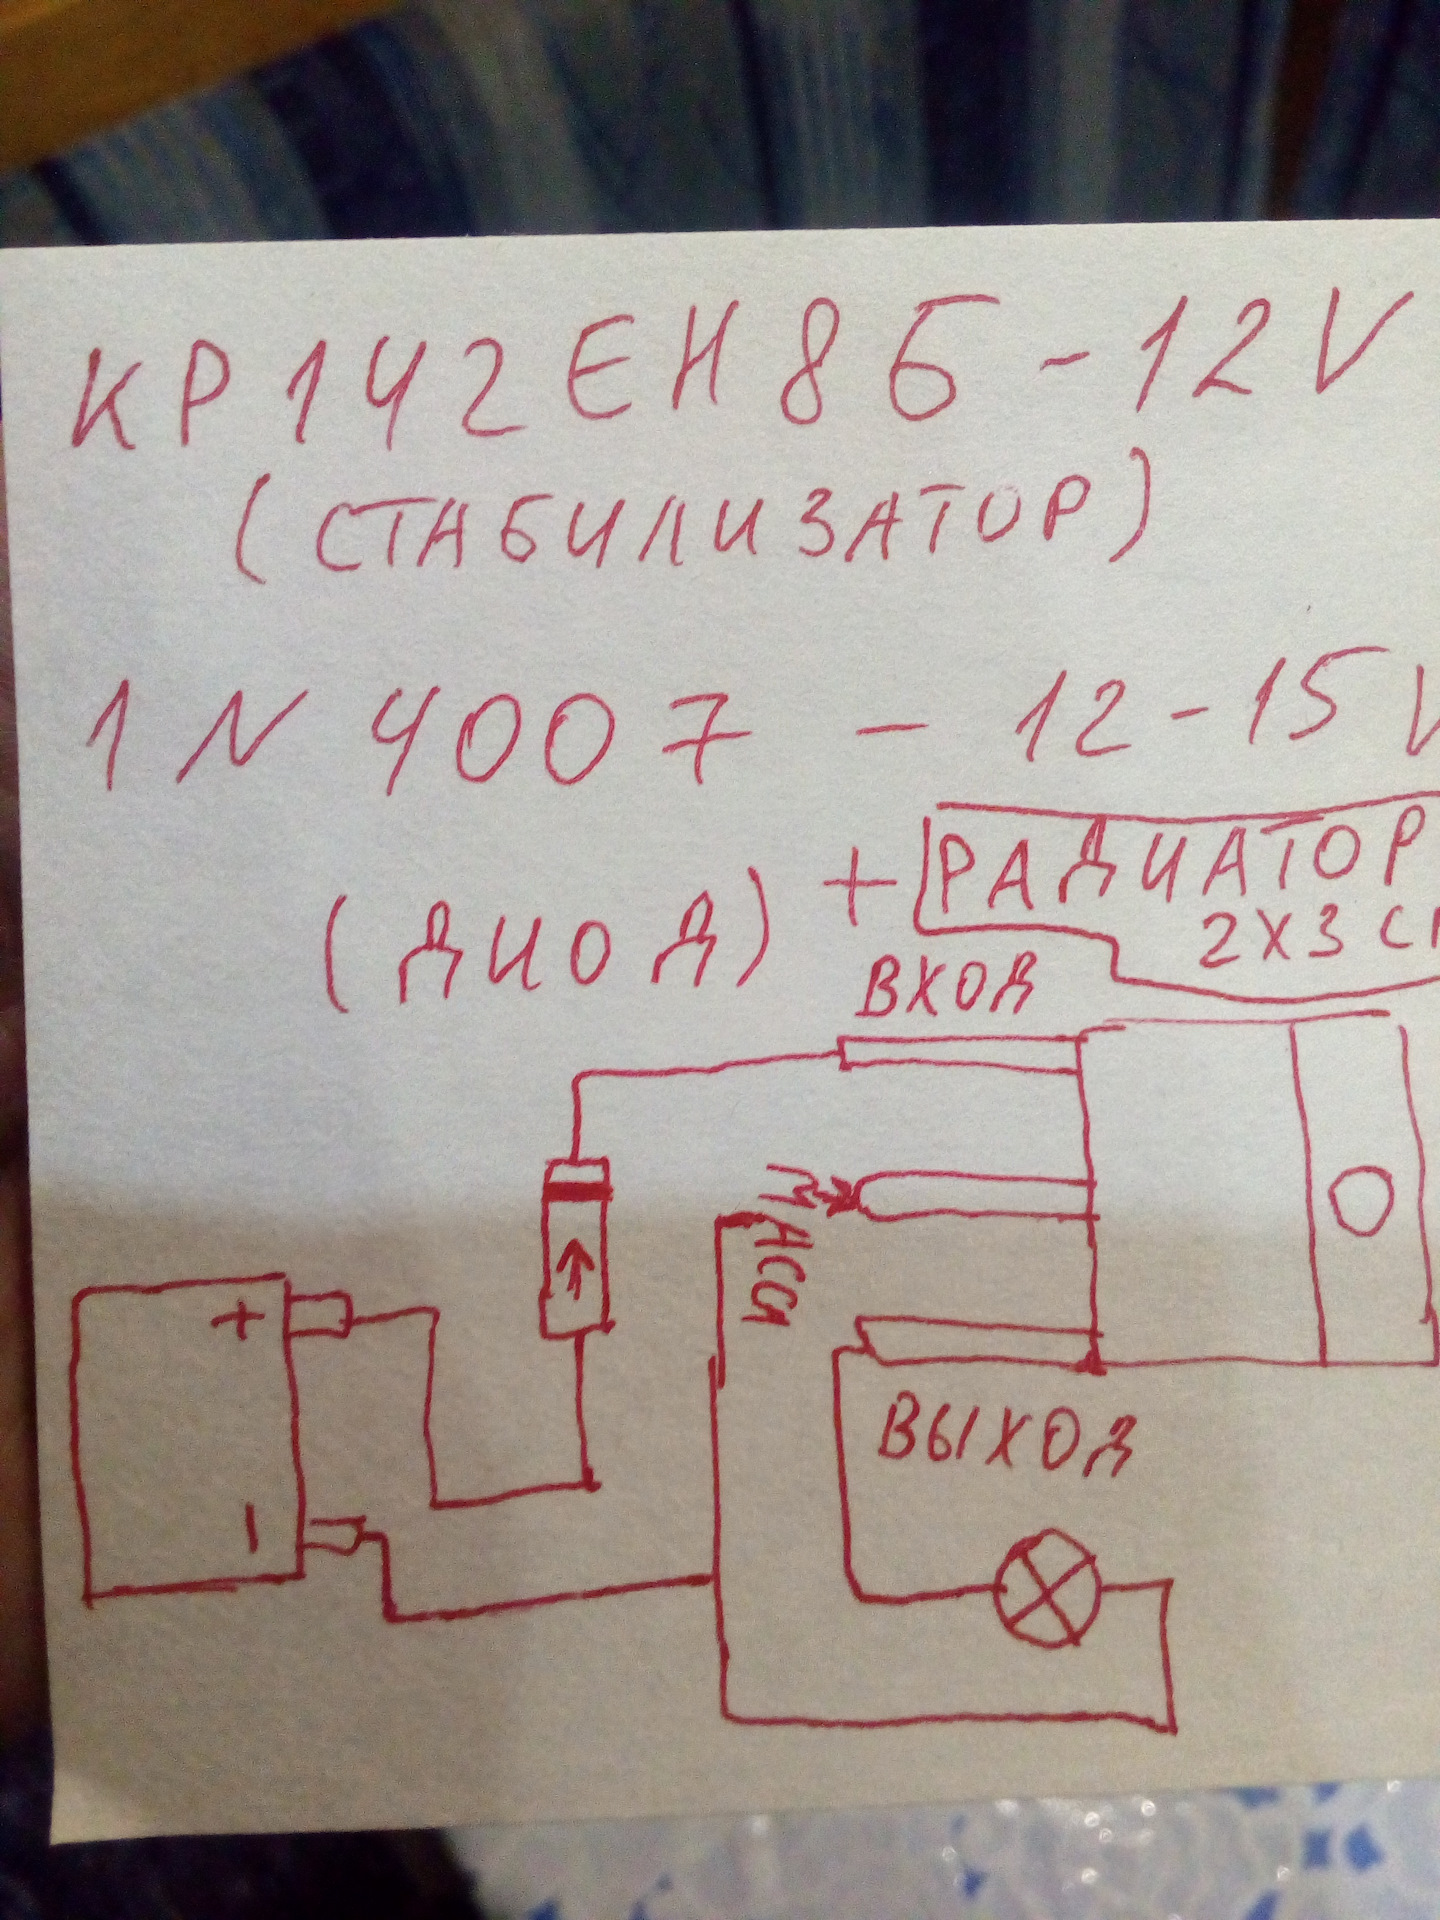 КР142ЕН8Б-12V
(СТАБИЛИЗАТОР)
1N4007 - 12-15V
(ДИОД) + РАДИАТОР
2X3
ВХОД
МАССА
+
-
ВЫХОД